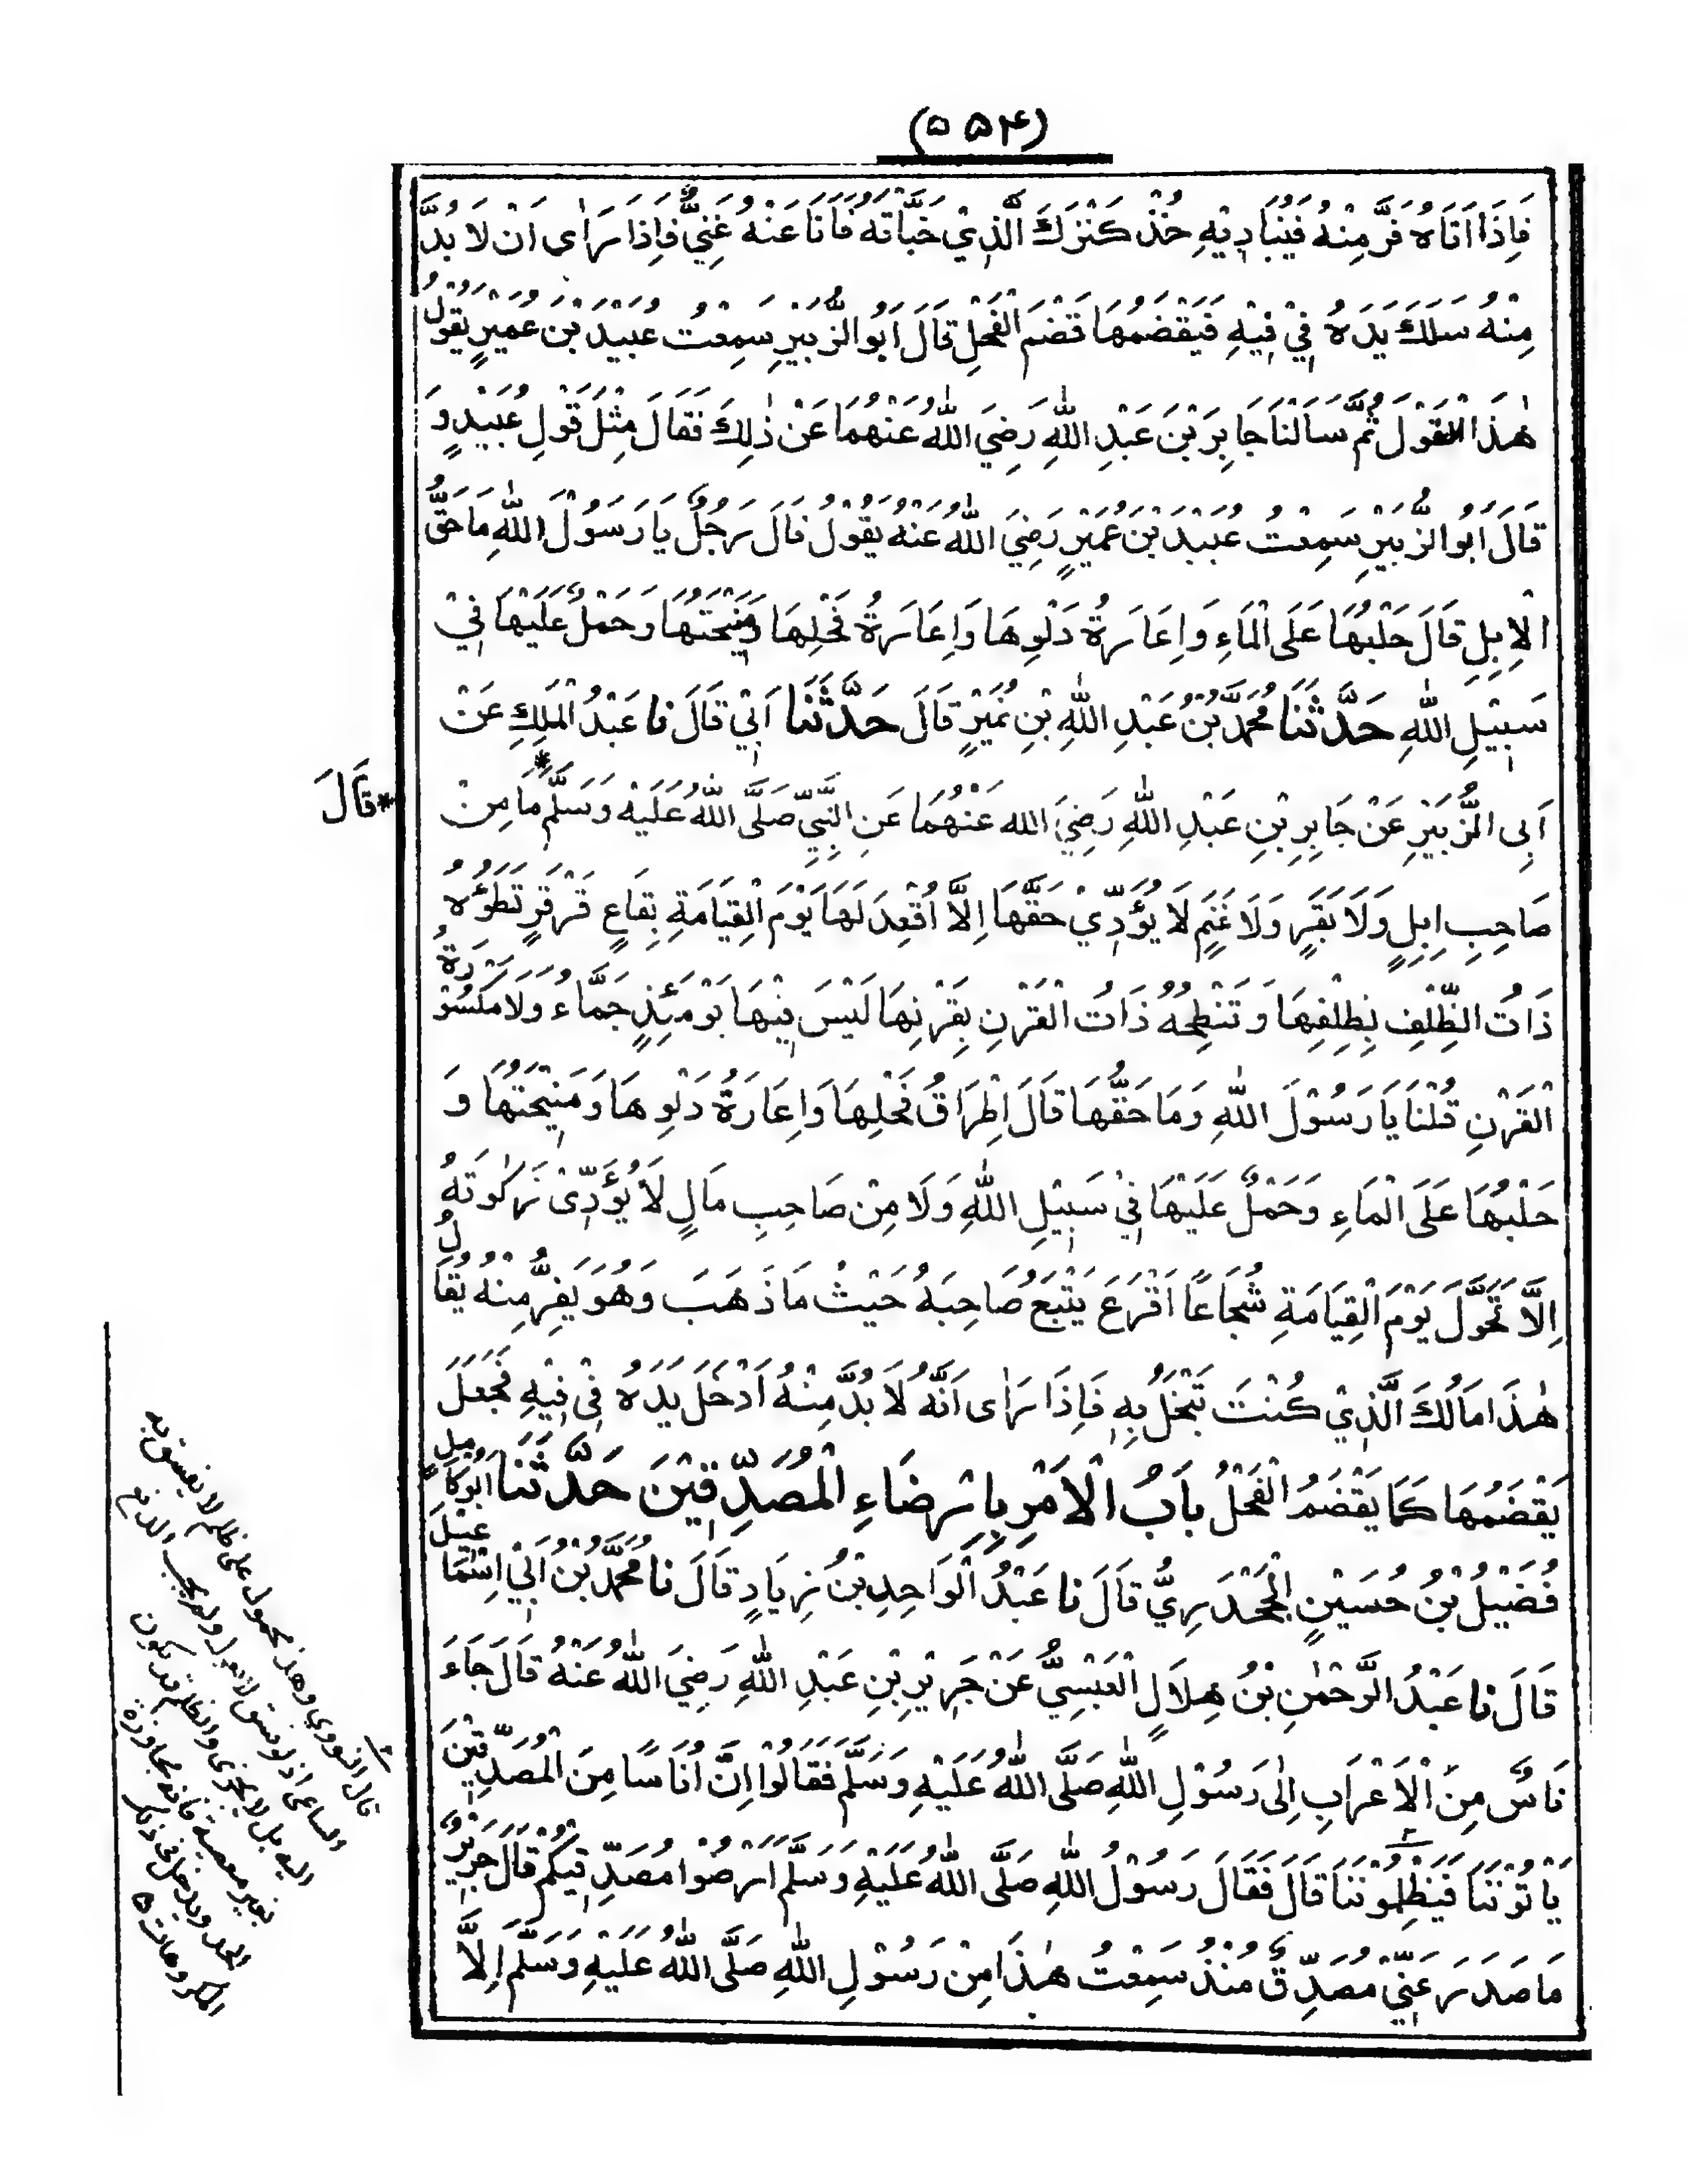 (۵۵۴)
فَاِذَا اَتَاهُ فَرَّ مِنْهُ فَيُنَادِيْهِ خُذْ كَنْزَكَ الَّذِيْ خَبَّاتَهُ فَاَنَا عَنْهُ غَنِيٌّ فَاِذَا رَاٰى اَنْ لَا بُدَّ
مِنْهُ سَلَكَ يَدَهُ فِيْ فِيْهِ فَيَقْضَمُهَا قَضْمَ الْفَحْلِ قَالَ اَبُو الزُّبَيْرِ سَمِعْتُ عُبَيْدَ بْنَ عُمَيْرٍ يَقُوْلُ
هٰذَا الْقَوْلَ ثُمَّ سَاَلْنَا جَابِرَ بْنَ عَبْدِ اللّٰهِ رَضِيَ اللّٰهُ عَنْهُمَا عَنْ ذٰلِكَ فَقَالَ مِثْلَ قَوْلِ عُبَيْدٍ وَ
قَالَ اَبُو الزُّبَيْرِ سَمِعْتُ عُبَيْدَ بْنَ عُمَيْرٍ رَضِيَ اللّٰهُ عَنْهُ يَقُوْلُ قَالَ رَجُلٌ يَا رَسُوْلَ اللّٰهِ مَا حَقُّ
الْاِبِلِ قَالَ حَلْبُهَا عَلَى الْمَاءِ وَاِعَارَةُ دَلْوِهَا وَاِعَارَةُ فَحْلِهَا وَمَنِيْحَتُهَا وَحَمْلٌ عَلَيْهَا فِيْ
سَبِيْلِ اللّٰهِ حَدَّثَنَا مُحَمَّدُ بْنُ عَبْدِ اللّٰهِ بْنِ نُمَيْرٍ قَالَ حَدَّثَنَا اَبِيْ قَالَ نا عَبْدُ الْمَلِكِ عَنْ
اَبِى الزُّبَيْرِ عَنْ جَابِرِ بْنِ عَبْدِ اللّٰهِ رَضِيَ الله عَنْهُمَا عَنِ النَّبِيِّ صَلَّى اللّٰهُ عَلَيْهِ وَسَلَّمَ * مَا مِنْ
* قَالَ
صَاحِبِ اِبِلٍ وَلَا بَقَرٍ وَلَا غَنَمٍ لَا يُؤَدِّيْ حَقَّهَا اِلَّا اُقْعِدَ لَهَا يَوْمَ الْقِيَامَةِ بِقَاعٍ قَرْقَرٍ تَطَؤُهُ
ذَاتُ الظِّلْفِ بِظِلْفِهَا وَ تَنْطِحُهُ ذَاتُ الْقَرْنِ بِقَرْنِهَا لَيْسَ فِيْهَا يَوْمَئِذٍ جَمَّاءُ وَلَا مَكْسُوْرَةُ
الْقَرْنِ قُلْنَا يَا رَسُوْلَ اللّٰهِ وَمَا حَقُّهَا قَالَ اِطْرَاقُ فَحْلِهَا وَاِعَارَةُ دَلْوِهَا وَمَنِيْحَتُهَا وَ
حَلْبُهَا عَلَى الْمَاءِ وَحَمْلٌ عَلَيْهَا فِيْ سَبِيْلِ اللّٰهِ وَلَا مِنْ صَاحِبِ مَالٍ لَا يُؤَدِّىْ زَكٰوتَهُ
اِلَّا تَحَوَّلَ يَوْمَ الْقِيَامَةِ شُجَاعًا اَقْرَعَ يَتْبَعُ صَاحِبَهُ حَيْثُ مَا ذَهَبَ وَهُوَ يَفِرُّ مِنْهُ يُقَالُ
هٰذَا مَالُكَ الَّذِيْ كُنْتَ تَبْخَلُ بِهِ فَاِذَا رَاٰى اَنَّهُ لَا بُدَّ مِنْهُ اَدْخَلَ يَدَهُ فِيْ فِيْهِ فَجَعَلَ
يَقْضَمُهَا كَمَا يَقْضَمُ الْفَحْلُ بَابُ الْاَمْرِ بِاِرْضَاءِ الْمُصَدِّقِيْنَ حَدَّثَنَا اَبُوْ كَامِلٍ
فُضَيْلُ بْنُ حُسَيْنٍ الْجَحْدَرِيُّ قَالَ نا عَبْدُ الْوَاحِدِ بْنُ زِيَادٍ قَالَ نا مُحَمَّدُ بْنُ اَبِيْ اِسْمَاعِيْلَ
قَالَ نا عَبْدُ الرَّحْمٰنِ بْنُ هِلَالٍ الْعَبْسِيُّ عَنْ جَرِيْرِ بْنِ عَبْدِ اللّٰهِ رَضِيَ اللّٰهُ عَنْهُ قَالَ جَاءَ
نَاسٌ مِنَ الْاَعْرَابِ اِلٰى رَسُوْلِ اللّٰهِ صَلَّى اللّٰهُ عَلَيْهِ وَسَلَّمَ فَقَالُوْا اِنَّ اُنَاسًا مِنَ الْمُصَدِّقِيْنَ
يَاْتُوْنَنَا فَيَظْلِمُوْنَنَا ٢ قَالَ فَقَالَ رَسُوْلُ اللّٰهِ صَلَّى اللّٰهُ عَلَيْهِ وَسَلَّمَ اَرْضُوْا مُصَدِّقِيْكُمْ قَالَ جَرِيْرٌ
مَا صَدَرَ عَنِّيْ مُصَدِّقٌ مُنْذُ سَمِعْتُ هٰذَا مِنْ رَسُوْلِ اللّٰهِ صَلَّى اللّٰهُ عَلَيْهِ وَسَلَّمَ اِلَّا
٢ قال النووي وهذ محمول على ظلم لا يفسق به
الساعى اذ لو فسق لانعزل ولم يجب الدفع
اليه بل لا يجزى والظلم قد يكون
بغير معصية فانه مجاوزة
الحد ويدخل فى ذلك
المكروهات ٥